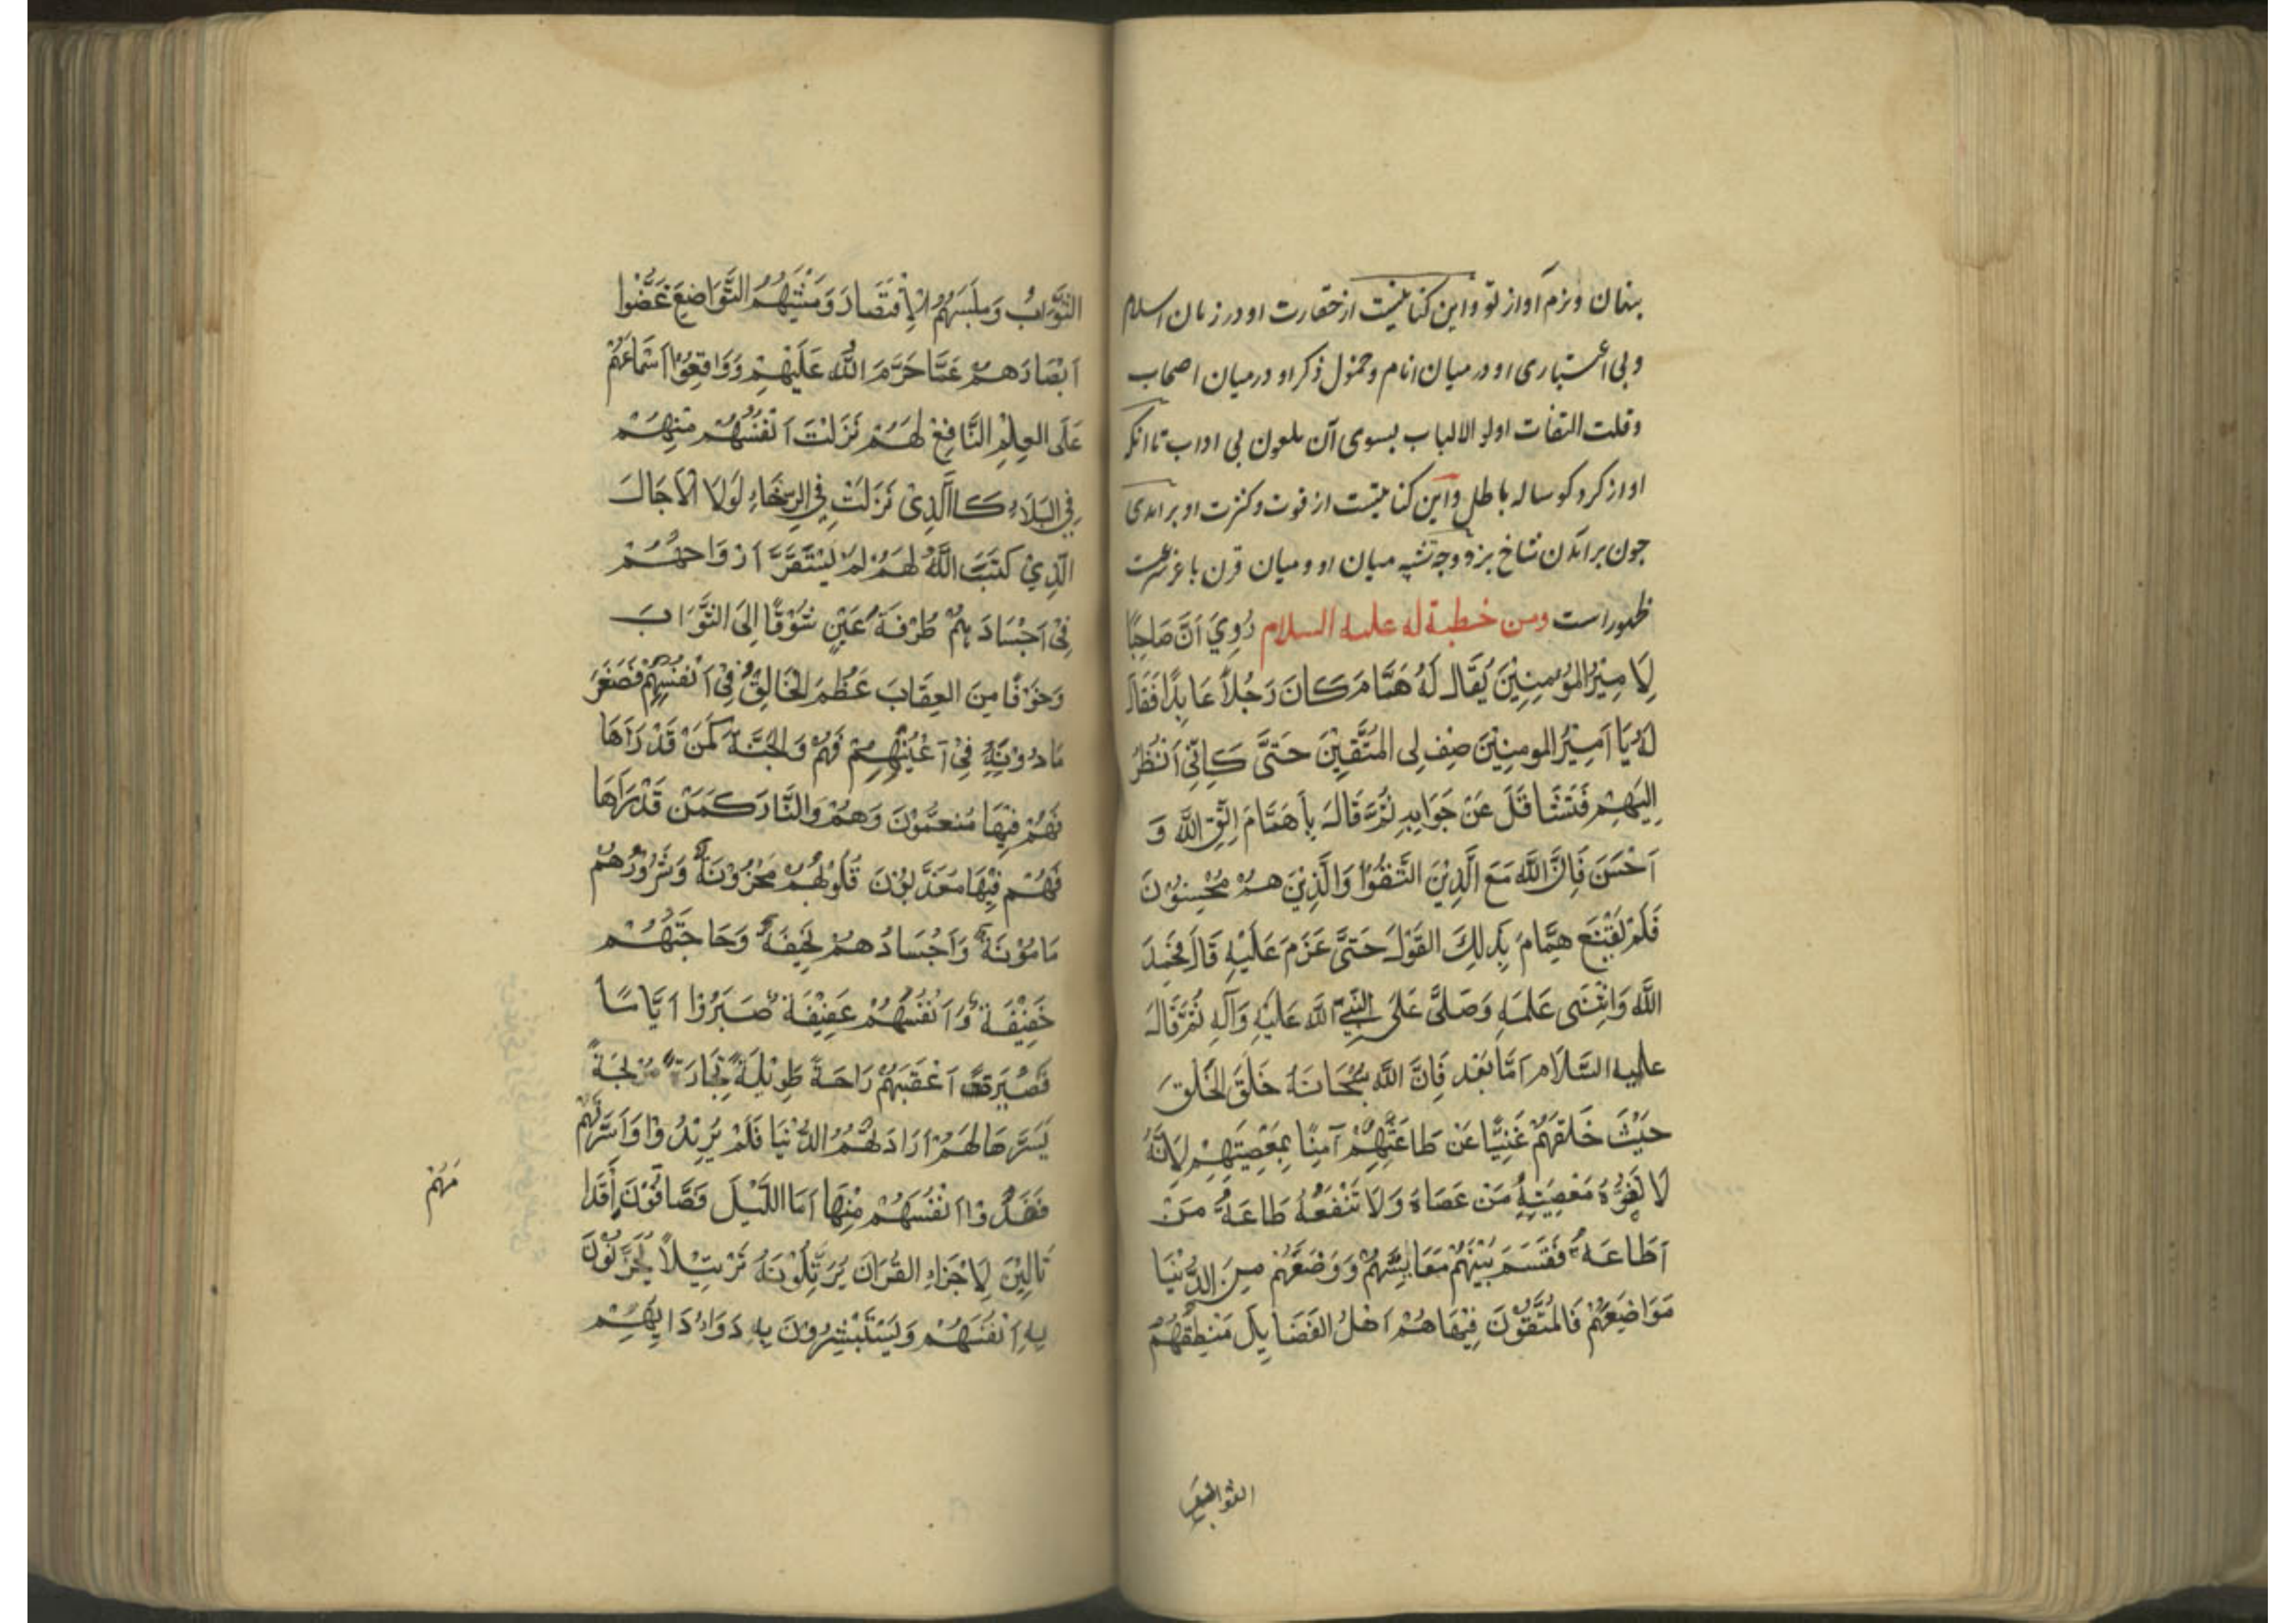 پنهان و نرم آواز تو و این کنایتیست از حقارت او در زمان اسلام
و بی اعتباری او در میان انام و خمول ذکر او در میان اصحاب
و قلت التفات اولو الالباب بسوی آن ملعون بی اداب تا انکه
اواز کرد کوساله باطل و این کنایتیست از قوت و کثرت او بر امدی
چون بر امدن شاخ بز و وجه تشبیه میان او و میان قرن باعز سرعت
ظهور است ومن خطبة له عليه السلام رُوِيَ اَنَّ صَاحِبًا
لِاَمِيْرِ المُؤْمِنِيْنَ يُقَالُ لَهُ هَمَّامَ كَانَ رَجُلاً عَابِدًا فَقَالَ
لَهُ يَا اَمِيْرُ المومِنِيْنَ صِف لِى المُتَّقِيْنَ حَتَّى كَاَنِّى اَنْظُرُ
اِلَيهِمْ فَتَثَاقَلَ عَنْ جَوَابِهِ ثُمَّ قَالَ يا هَمَّامَ اِتَّقِ اللَّهَ وَ
اَحْسَنَ فَاِنَّ اللَّهَ مَعَ الَّذِيْنَ اتَّقُوْا وَالَّذِيْنَ هُمْ مُحْسِنُوْنَ
فَلَمْ يَقْنَعْ هَمَّامُ بِذلِكَ القَوْلَ حَتَّى عَزَمَ عَلَيْهِ قَالَ فَحَمِدَ
اللَّهَ وَاثْنَى عَلَيهِ وَصَلَّى عَلَى النَّبِيِّ اللَّه عَلَيْهِ وَآلِهِ ثُمَّ قَالَ
عليه السَّلَام اَمَّا بَعْد فَاِنَّ اللَّهَ سُبْحَانَهُ خَلَقَ الخَلْقَ
حَيْثَ خَلَقَهُمْ غَنِيًّا عَنْ طَاعَتِهِمْ آمِنًا بِمَعْصِيَتِهِمْ لِاَنَّهُ
لَا تَضُرُّهُ مَعْصِيَتِهُ مَنْ عَصَاهُ وَلَا تَنْفَعُهُ طَاعَةُ مَنْ
اَطَاعَهُ فَقَسَمَ بَيْنَهُمْ مَعَايِشَهُمْ وَوَضَعَهُمْ مِنَ الدُّنْيَا
مَوَاضِعَهُمْ فَالمُتَّقُوْنَ فِيْهَا هُمْ اَهْلُ الفَضَايِلَ مَنْطِقُهُمُ
الثَّوَابُ وَمَلْبَسَهُمُ الْاِقْتَصَادَ وَمَشْيَهُمُ التَّوَاضِعَ غَضُّوا
اَبْصَارَهُمْ عَمَّا حَرَّمَ اللَّهُ عَلَيْهِمْ وَوَاقِفُوْا اَسْمَاعَهُمْ
عَلَى العِلْمِ النَّافِعْ لَهُمْ نَزَلَتْ اَنْفُسُهُمْ مِنْهِمْ
فِى البَلَاءِ كَالَّذِى نَزَلَتْ فِى الرِّخَاءِ لَوْلَا الْاَجَالَ
الَّذِيْ كَتَبَ اللَّهُ لَهُمْ لَمْ يَسْتَقَرَّ اَرْوَاحهُمْ
فِىْ اَجْسَادَهِمْ طُرْفَةَ عَيْنٍ شَوْقًا اِلَى الثَّوَابَ
وَخَوْفًا مِنَ العِقَابَ عَظُمَ الخَالِقُ فِى اَنْفُسِهِمْ فَصَغَرَ
مَادُوْنَهِ فِىْ اَعْيُنِهِمْ فَهُمْ وَالجَنَّةَ كَمَنْ قَدْ رَآهَا
فَهُمْ فِيْهَا مُنَعَّمُوْنَ وَهُمْ وَالنَّارَ كَمَنْ قَدْ رَآهَا
فَهُمْ فِيْهَا مُعَذَّبُوْنَ قُلُوْبُهُمْ مَحْزُوْنَةٌ وَشُرُوْرُهُمْ
مَامُوْنَةٌ وَاَجْسَادُهُمْ نَحِيفَةٌ وَحَاجَتَهُمْ
خَفِيْفَةٌ وَاَنْفُسَهُمْ عَفِيْفَةٌ صَبَرُوْا اَيَّامًا
قَصْيَرَةً اَعْقَبَهُمْ رَاحَةً طَوِيْلَةً تِجَارَةٌ مُرْبِحَةً
يَسَّرَهَا لَهُمْ اَرَادَتْهُمُ الدُّنْيَا فَلَمْ يُرِيْدُوْا وَاَسَرَتْهُمْ
فَفَدُّوْا اَنْفُسَهُمْ مِنْهَا اَمَا اللَّيْلَ فَصَّافُّوْنَ اَقْدَا
مَهُمْ
تَالِيْنَ لِاَجْزَاءِ القُرْاٰنَ يُرَتِّلُوْنَهُ تَرْتِيْلاً يُحَزِّنُوْنَ
بِهِ اَنْفُسَهُمْ وَيَسْتَبْشِرُوْنَ بِهِ دَوَاءُ دَايِهِمْ